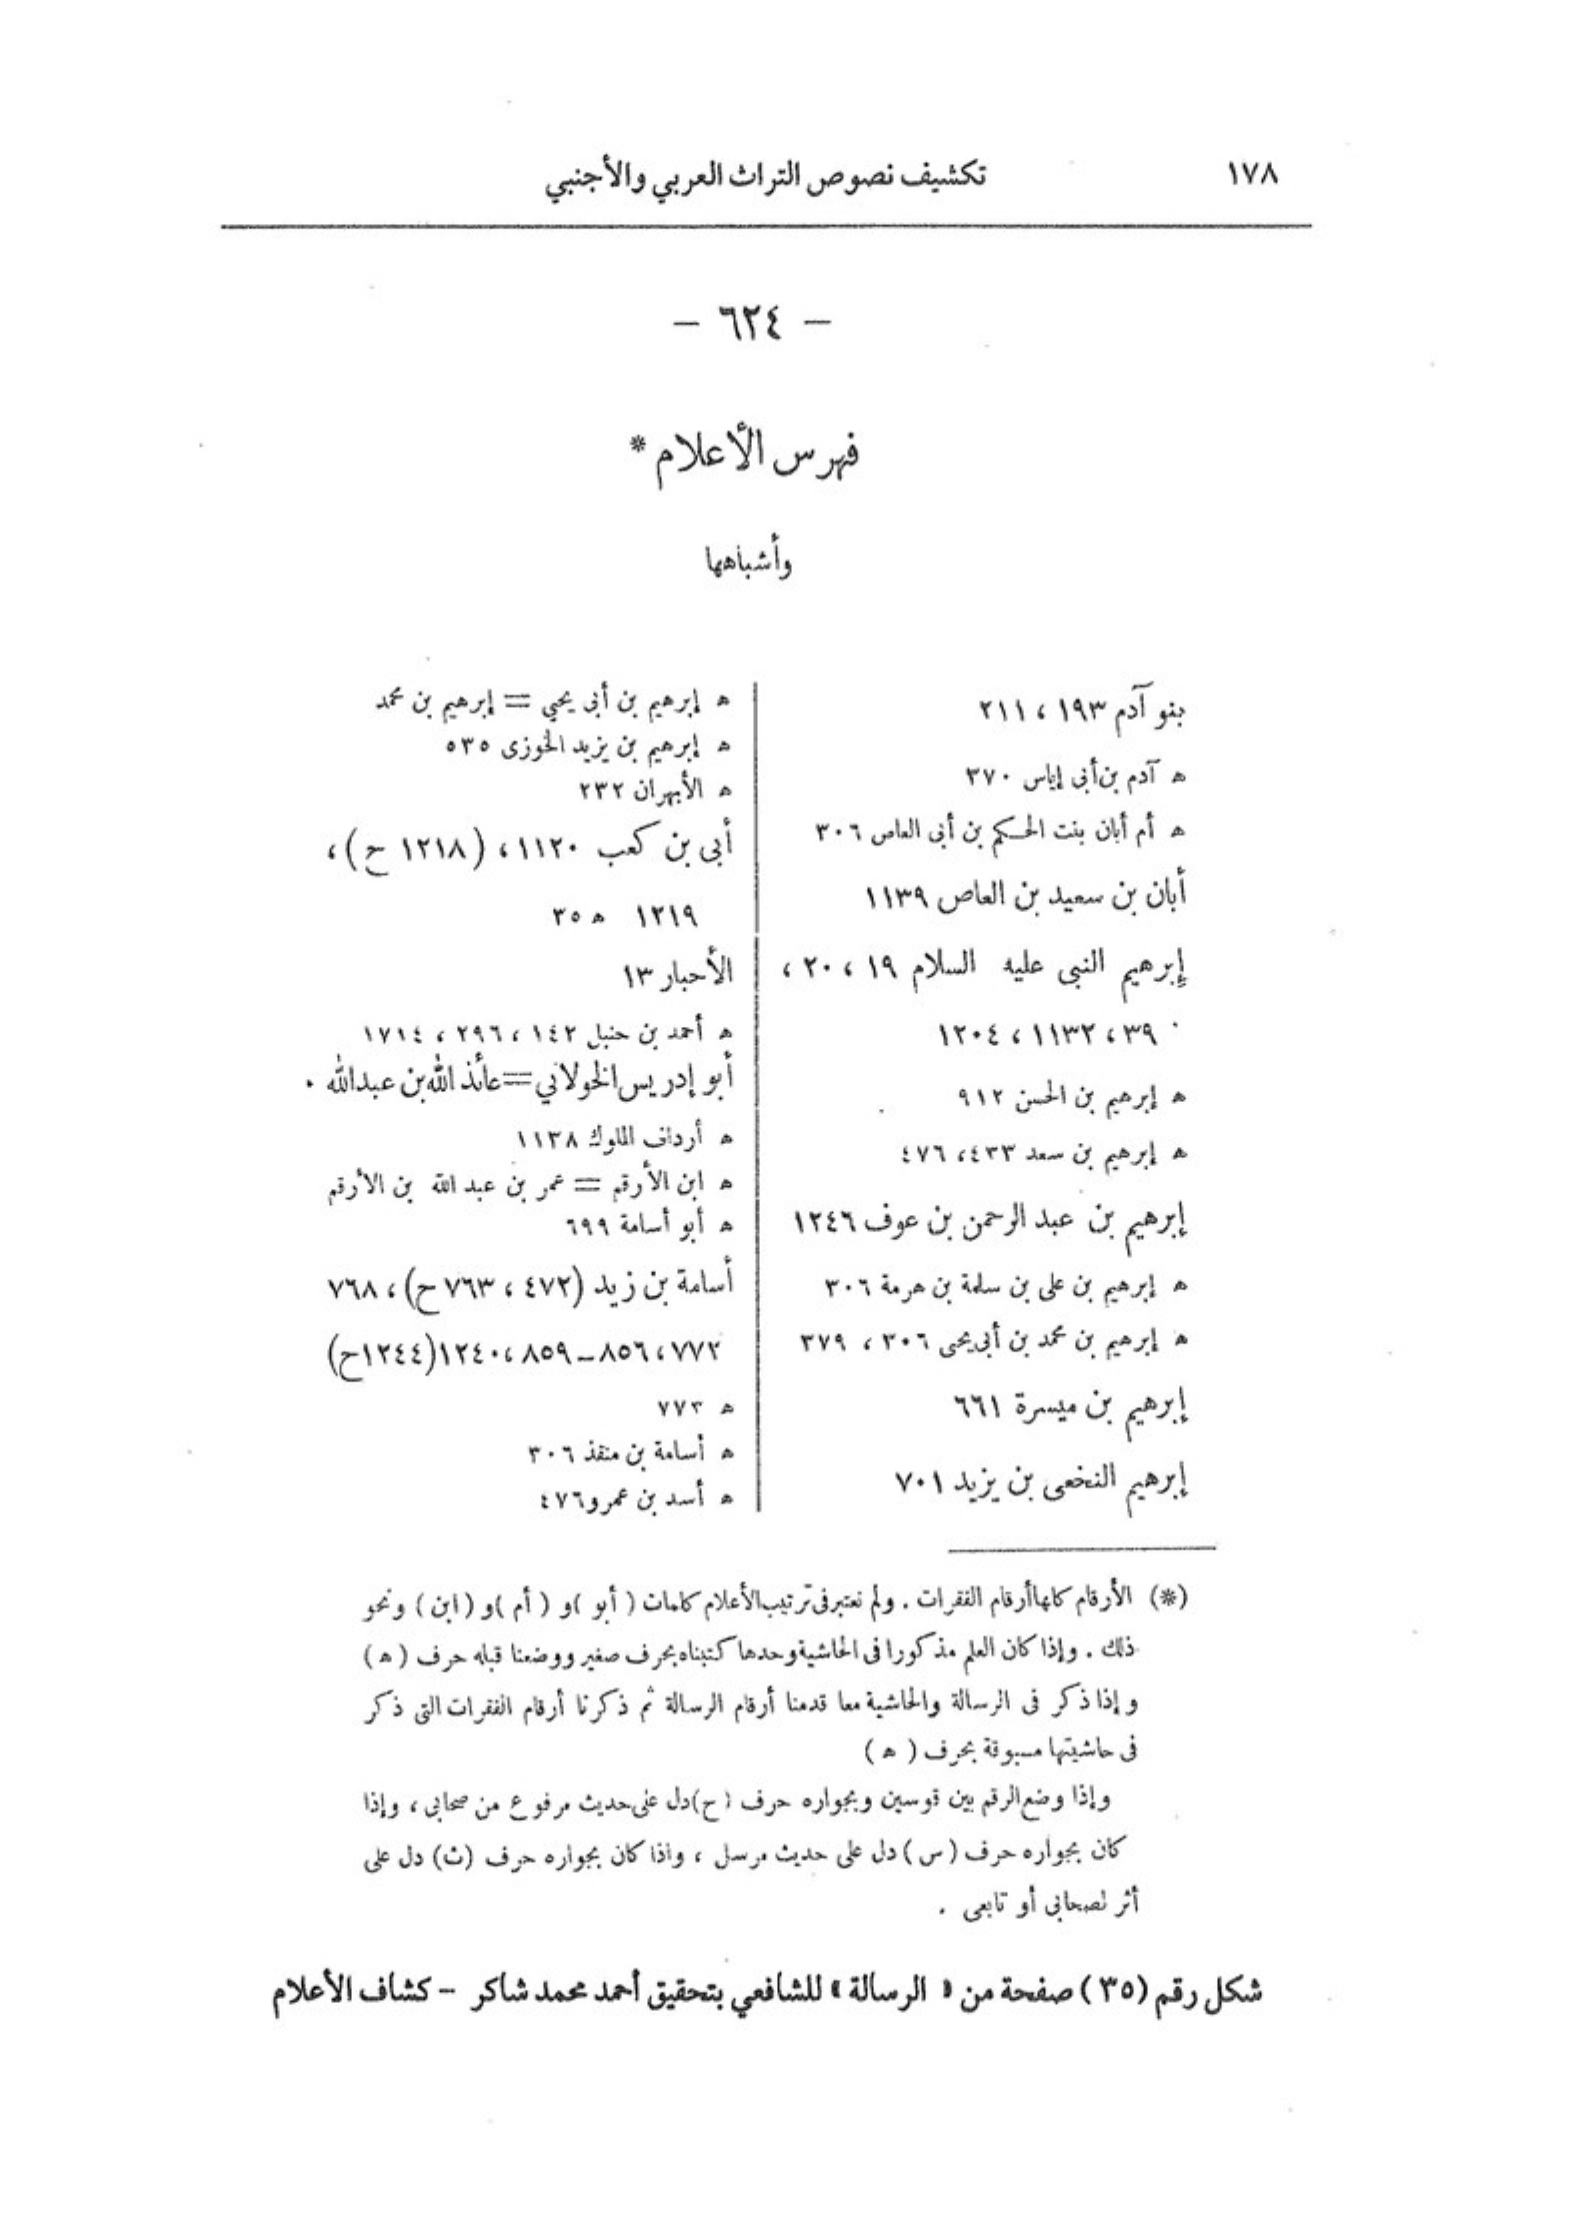 ١٧٨
تكشيف نصوص التراث العربي والأجنبي
— ٦٢٤ —
فهرس الأعلام *
وأشباهها
بنو آدم ١٩٣ ، ٢١١
ه آدم بن أبى إياس ٣٧٠
ه أم أبان بنت الحكم بن أبى العاص ٣٠٦
أبان بن سعيد بن العاص ١١٣٩
إبرهيم النبى عليه السلام ١٩ ، ٢٠ ،
٣٩ ، ١١٣٢ ، ١٢٠٤
ه إبرهيم بن الحسن ٩١٢
ه إبرهيم بن سعد ٤٣٣ ، ٤٧٦
إبرهيم بن عبد الرحمن بن عوف ١٢٤٦
ه إبرهيم بن على بن سلمة بن هرمة ٣٠٦
ه إبرهيم بن محمد بن أبى يحيى ٣٠٦ ، ٣٧٩
إبرهيم بن ميسرة ٦٦١
إبرهيم النخعى بن يزيد ٧٠١
ه إبرهيم بن أبى يحيي = إبرهيم بن محمد
ه إبرهيم بن يزيد الخوزى ٥٣٥
ه الأبهران ٢٣٢
أبى بن كعب ١١٢٠ ، (١٢١٨ ح) ،
١٢١٩ ه ٣٥
الأحبار ١٣
ه أحمد بن حنبل ١٤٢ ، ٢٩٦ ، ١٧١٤
أبو إدريس الخولاني = عائذ الله بن عبدالله .
ه أرداف الملوك ١١٣٨
ه ابن الأرقم = عمر بن عبد الله بن الأرقم
ه أبو أسامة ٦٩٩
أسامة بن زيد (٤٧٢ ، ٧٦٣ ح) ، ٧٦٨
٧٧٢ ، ٨٥٦ – ٨٥٩ ، ١٢٤٠ (١٢٤٤ح)
ه ٧٧٣
ه أسامة بن منقذ ٣٠٦
ه أسد بن عمرو ٤٧٦
(*) الأرقام كلها أرقام الفقرات . ولم نعتبر فى ترتيب الأعلام كلمات ( أبو ) و ( أم ) و ( ابن ) ونحو
ذلك . وإذا كان العلم مذكورا فى الحاشية وحدها كتبناه بحرف صغير ووضعنا قبله حرف ( ه )
وإذا ذكر فى الرسالة والحاشية معا قدمنا أرقام الرسالة ثم ذكرنا أرقام الفقرات التى ذكر
فى حاشيتها مسبوقة بحرف ( ه )
وإذا وضع الرقم بين قوسين وبجواره حرف ( ح ) دل على حديث مرفوع من صحابى ، وإذا
كان بجواره حرف ( س ) دل على حديث مرسل ، واذا كان بجواره حرف (ث) دل على
أثر لصحابى أو تابعى .
شكل رقم (٣٥) صفحة من « الرسالة » للشافعي بتحقيق أحمد محمد شاكر – كشاف الأعلام